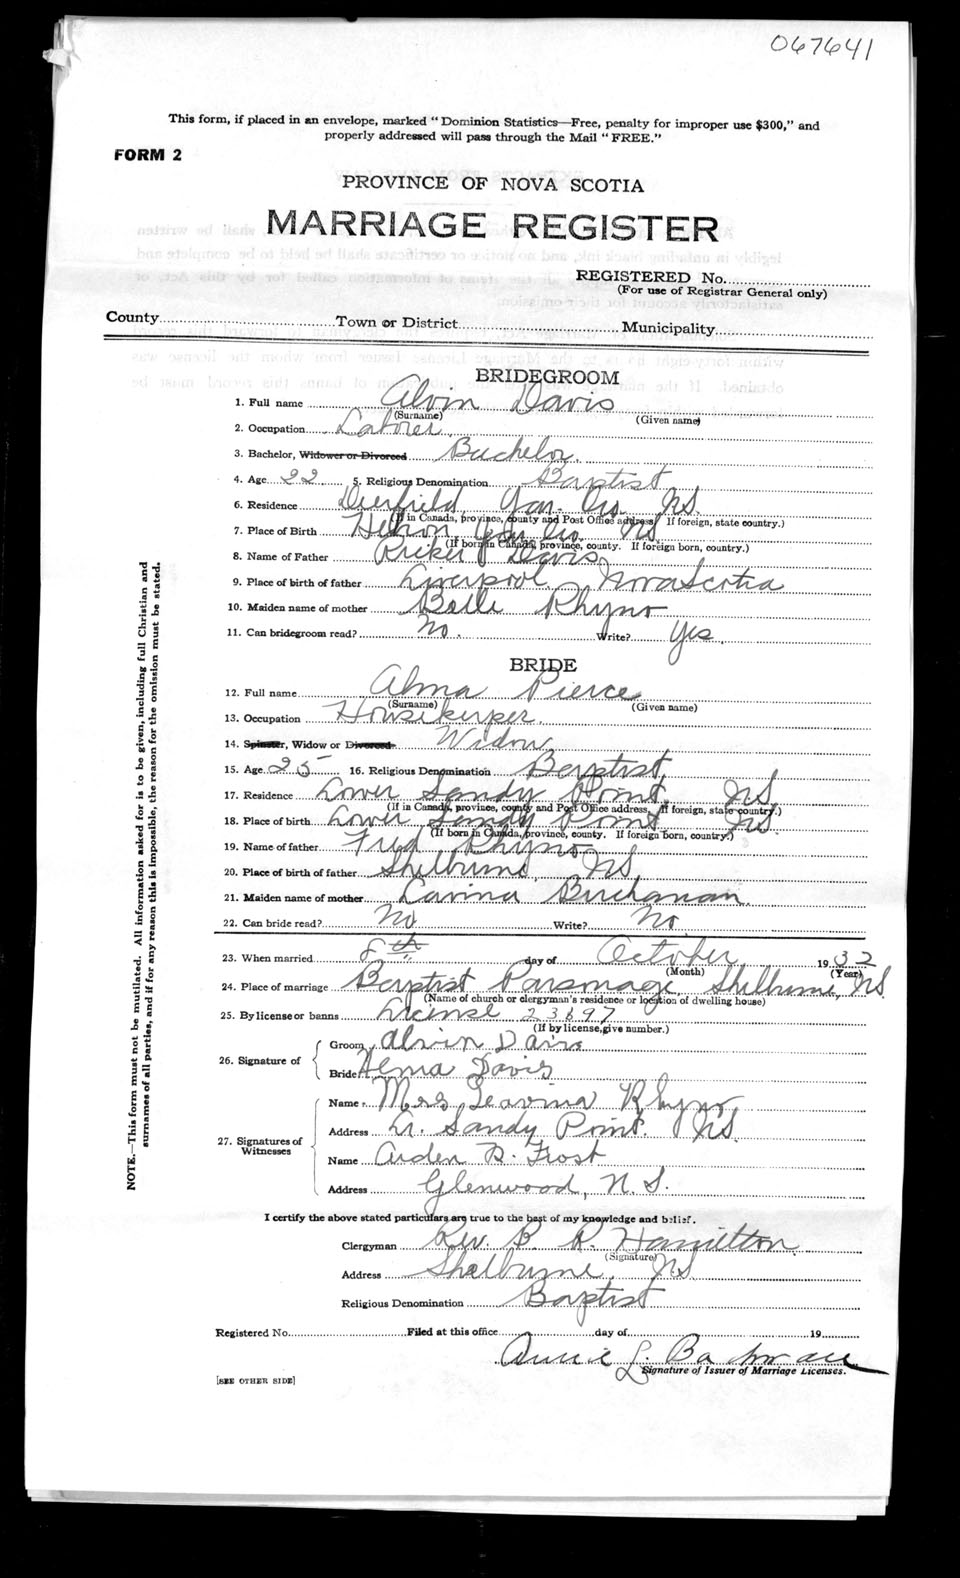 067641
This form, if placed in an envelope, marked "Dominion Statistics—Free, penalty for improper use $300," and
properly addressed will pass through the Mail "FREE."
FORM 2
PROVINCE OF NOVA SCOTIA
MARRIAGE REGISTER
REGISTERED No.
(For use of Registrar General only)
County Town or District Municipality
BRIDEGROOM
1. Full name Alvin Davis
(Surname) (Given name)
2. Occupation Laborer
3. Bachelor, Widower or Divorced Bachelor
4. Age 22 5. Religious Denomination Baptist
6. Residence Deerfield Yar. Co. N.S.
(If in Canada, province, county and Post Office address. If foreign, state country.)
7. Place of Birth Hebron, Yar. Co. N.S.
(If born in Canada, province, county. If foreign born, country.)
8. Name of Father Davis
9. Place of birth of father Liverpool, Nova Scotia
10. Maiden name of mother Belle Rhyno
11. Can bridegroom read? No. Write? Yes
BRIDE
12. Full name Alma Pierce
(Surname) (Given name)
13. Occupation Housekeeper
14. Spinster, Widow or Divorced Widow
15. Age 25 16. Religious Denomination Baptist
17. Residence Lower Sandy Point, N.S.
(If in Canada, province, county and Post Office address. If foreign, state country.)
18. Place of birth Lower Sandy Point N.S.
(If born in Canada, province, county. If foreign born, country.)
19. Name of father Fred Rhyno
20. Place of birth of father Shelburne, N.S.
21. Maiden name of mother Lavina Buchanan
22. Can bride read? No Write? No
23. When married 8th day of October 1932
(Month) (Year)
24. Place of marriage Baptist Parsonage Shelburne, N.S.
(Name of church or clergyman's residence or location of dwelling house)
25. By license or banns License 23897
(If by license, give number.)
26. Signature of Groom Alvin Davis
Bride Alma Davis
27. Signatures of Witnesses
Name Mrs Leavina Rhyno
Address Lr. Sandy Point. N.S.
Name Arden B. Frost
Address Glenwood, N.S.
I certify the above stated particulars are true to the best of my knowledge and belief.
Clergyman Rev. B. R. Hamilton
(Signature)
Address Shelburne, N.S.
Religious Denomination Baptist
Registered No. Filed at this office day of 19
Annie L.
Signature of Issuer of Marriage Licenses.
[SEE OTHER SIDE]
NOTE.—This form must not be mutilated. All information asked for is to be given, including full Christian and
surnames of all parties, and if for any reason this is impossible, the reason for the omission must be stated.